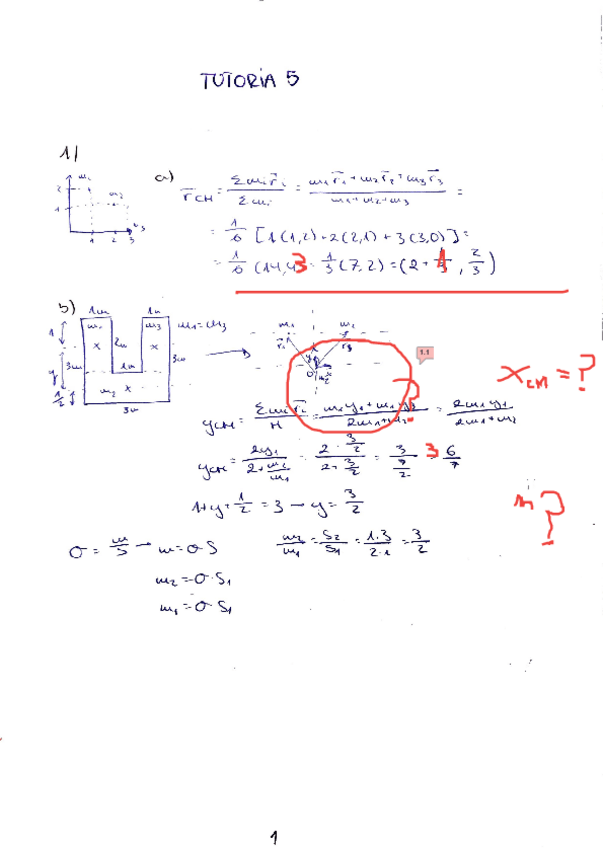 TUTORIA 5
1/
a)
m₁
m₂
m₃
2
1
1 2 3
r⃗CM = Σmᵢr⃗ᵢ / Σmᵢ = m₁r⃗₁+m₂r⃗₂+m₃r⃗₃ / m₁+m₂+m₃ =
= 1/6 [1(1,2)+2(2,1)+3(3,0)] =
= 1/6 (14,4) = 1/3 (7,2) = (2+1/3, 2/3)
3
b)
1m 1m
m₁ m₃ m₁=m₃
1
2m
y 3m 1m 3m
1/2 m₂
3m
m₁ m₂
r⃗₁ r⃗₃
0
1.1
xCM = ?
yCM = Σmᵢr⃗ᵢ / M = m₁y₁+m₁y₁ / 2m₁+m₂ = 2m₁y₁ / 2m₁+m₂
?
yCM = 2y₁ / 2+m₂/m₁ = 2·3/2 / 2+3/2 = 3 / 7/2 3 6/7
1+y+1/2 = 3 → y = 3/2
m ?
σ = m/S → m = σS m₂/m₁ = S₂/S₁ = 1·3/2·1 = 3/2
m₂ = σ·S₁
m₁ = σ·S₁
1